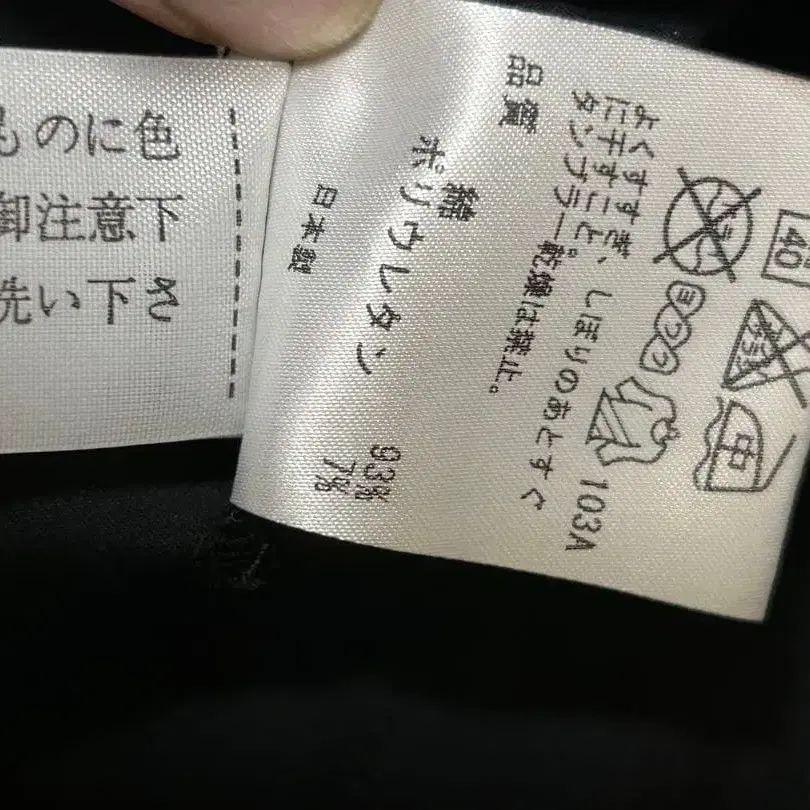 ものに色
御注意下
洗い下さ
40
ドライ
ヨワク
中
103A
よくすすぎ、しぼりのあとすぐ
に干すこと。
タンブラー乾燥は禁止。
品質
綿 93%
ポリウレタン 7%
日本製